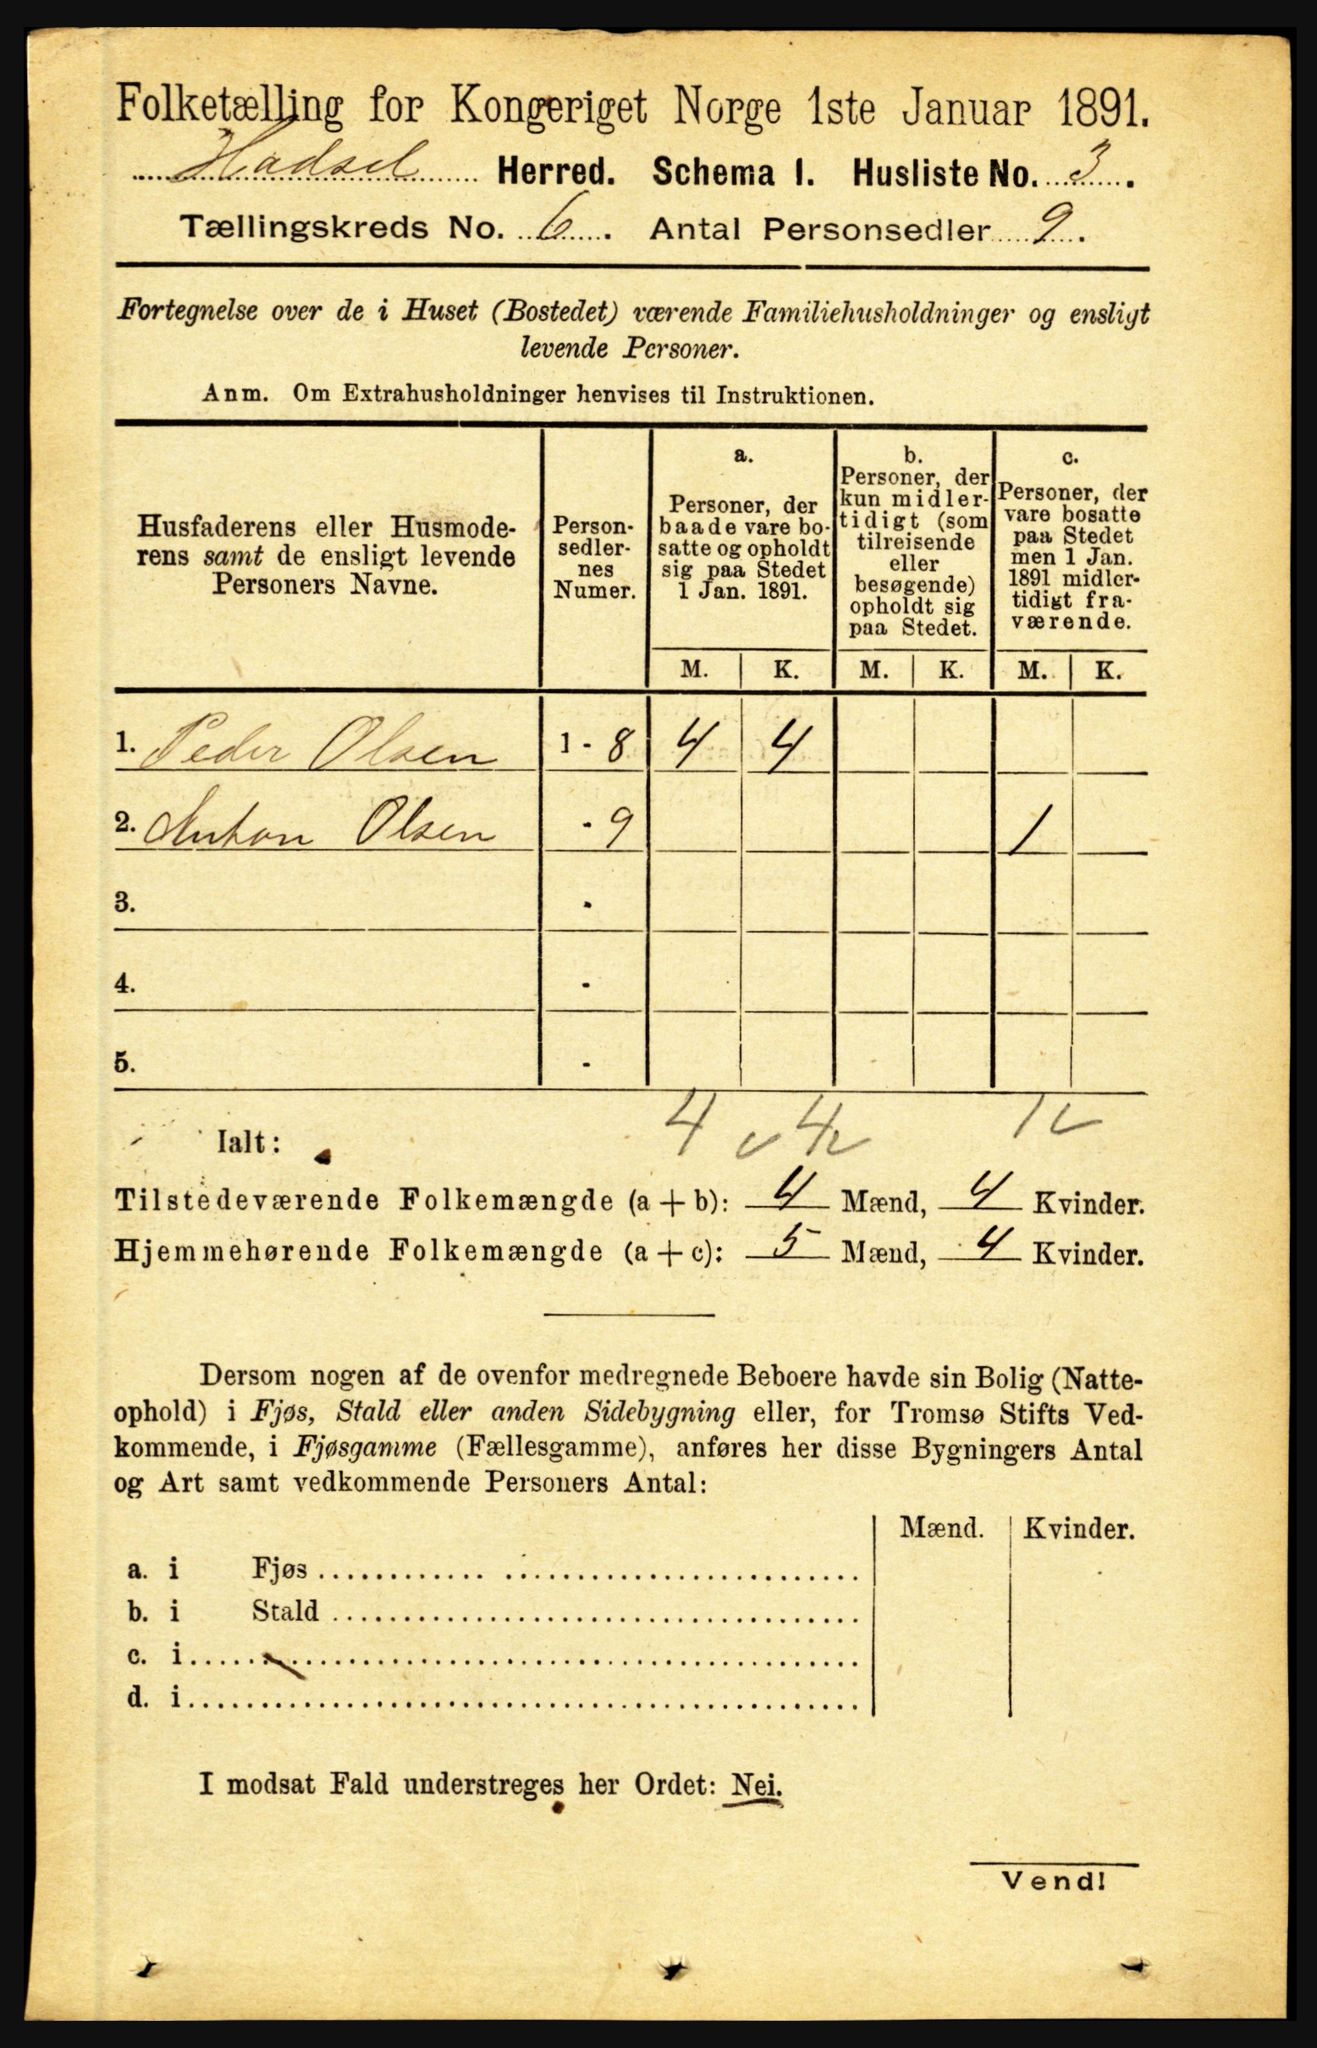 Folketælling for Kongeriget Norge 1ste Januar 1891.
Hadsel Herred. Schema I. Husliste No. 3.
Tællingskreds No. 6. Antal Personsedler 9.
Fortegnelse over de i Huset (Bostedet) værende Familiehusholdninger og ensligt
levende Personer.
Anm. Om Extrahusholdninger henvises til Instruktionen.
Husfaderens eller Husmode-
rens samt de ensligt levende
Personers Navne.
Person-
sedler-
nes
Numer.
a.
Personer, der
baade vare bo-
satte og opholdt
sig paa Stedet
1 Jan. 1891.
b.
Personer, der
kun midler-
tidigt (som
tilreisende
eller
besøgende)
opholdt sig
paa Stedet.
c.
Personer, der
vare bosatte
paa Stedet
men 1 Jan.
1891 midler-
tidigt fra-
værende.
M. K. M. K. M. K.
1. Peder Olsen 1 - 8 4 4
2. Anton Olsen - 9 1
3. -
4. -
5. -
Ialt: 4 4 1
Tilstedeværende Folkemængde (a + b): 4 Mænd, 4 Kvinder.
Hjemmehørende Folkemængde (a + c): 5 Mænd, 4 Kvinder.
Dersom nogen af de ovenfor medregnede Beboere havde sin Bolig (Natte-
ophold) i Fjøs, Stald eller anden Sidebygning eller, for Tromsø Stifts Ved-
kommende, i Fjøsgamme (Fællesgamme), anføres her disse Bygningers Antal
og Art samt vedkommende Personers Antal:
Mænd. Kvinder.
a. i Fjøs
b. i Stald
c. i
d. i
I modsat Fald understreges her Ordet: Nei.
Vend!